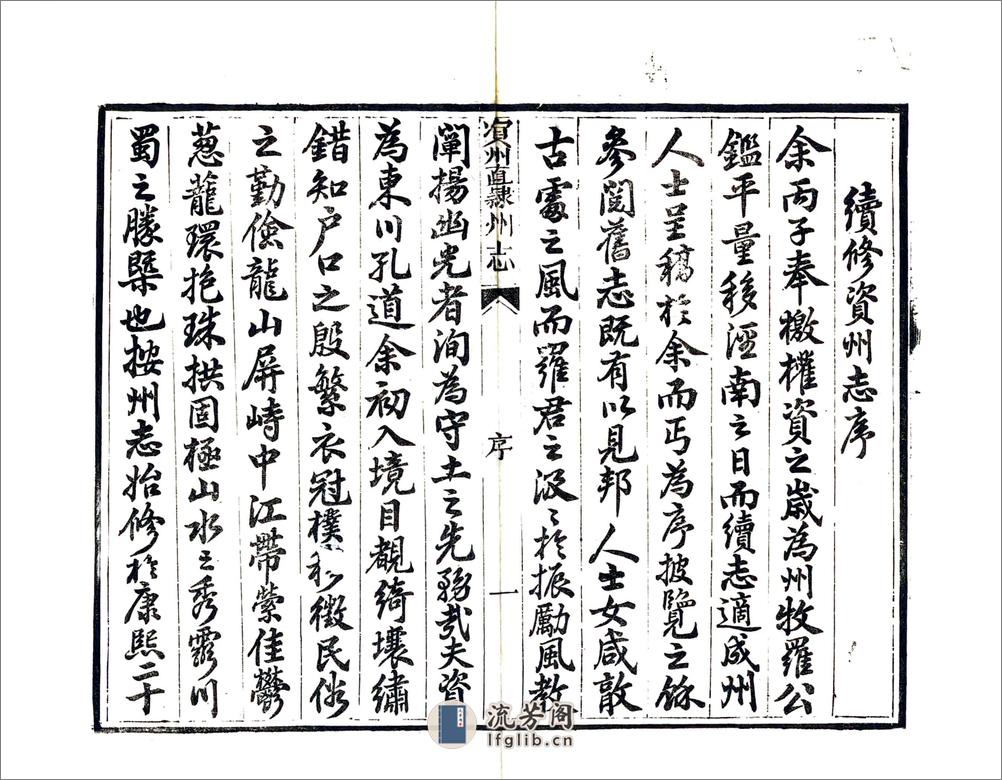 續修資州志序
余丙子奉檄權資之歲為州牧羅公
鑑平量移瀘南之日而續志適成州
人士呈稿於余而丐為序披覽之餘
參閱舊志既有以見邦人士女咸敦
古處之風而羅君之汲〻於振勵風教
資州直隸州志
序
一
闡揚幽光者洵為守土之先務哉夫資
為東川孔道余初入境目覩綺壤繡
錯知户口之殷繁衣冠樸徵民俗
之勤儉龍山屏峙中江帶縈佳鬱
葱蘢環抱珠拱固極山水之秀靈川
蜀之勝槩也按州志始修於康熙二十
流芳阁
lfglib.cn